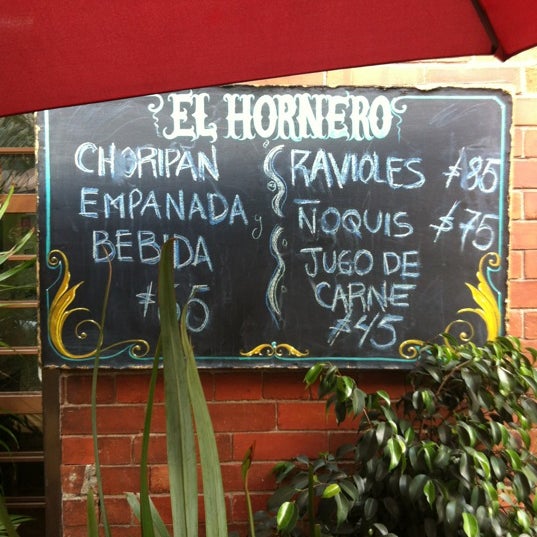 EL HORNERO
CHORIPAN
EMPANADA y
BEBIDA
RAVIOLES $85
ÑOQUIS $75
JUGO DE
CARNE
$45